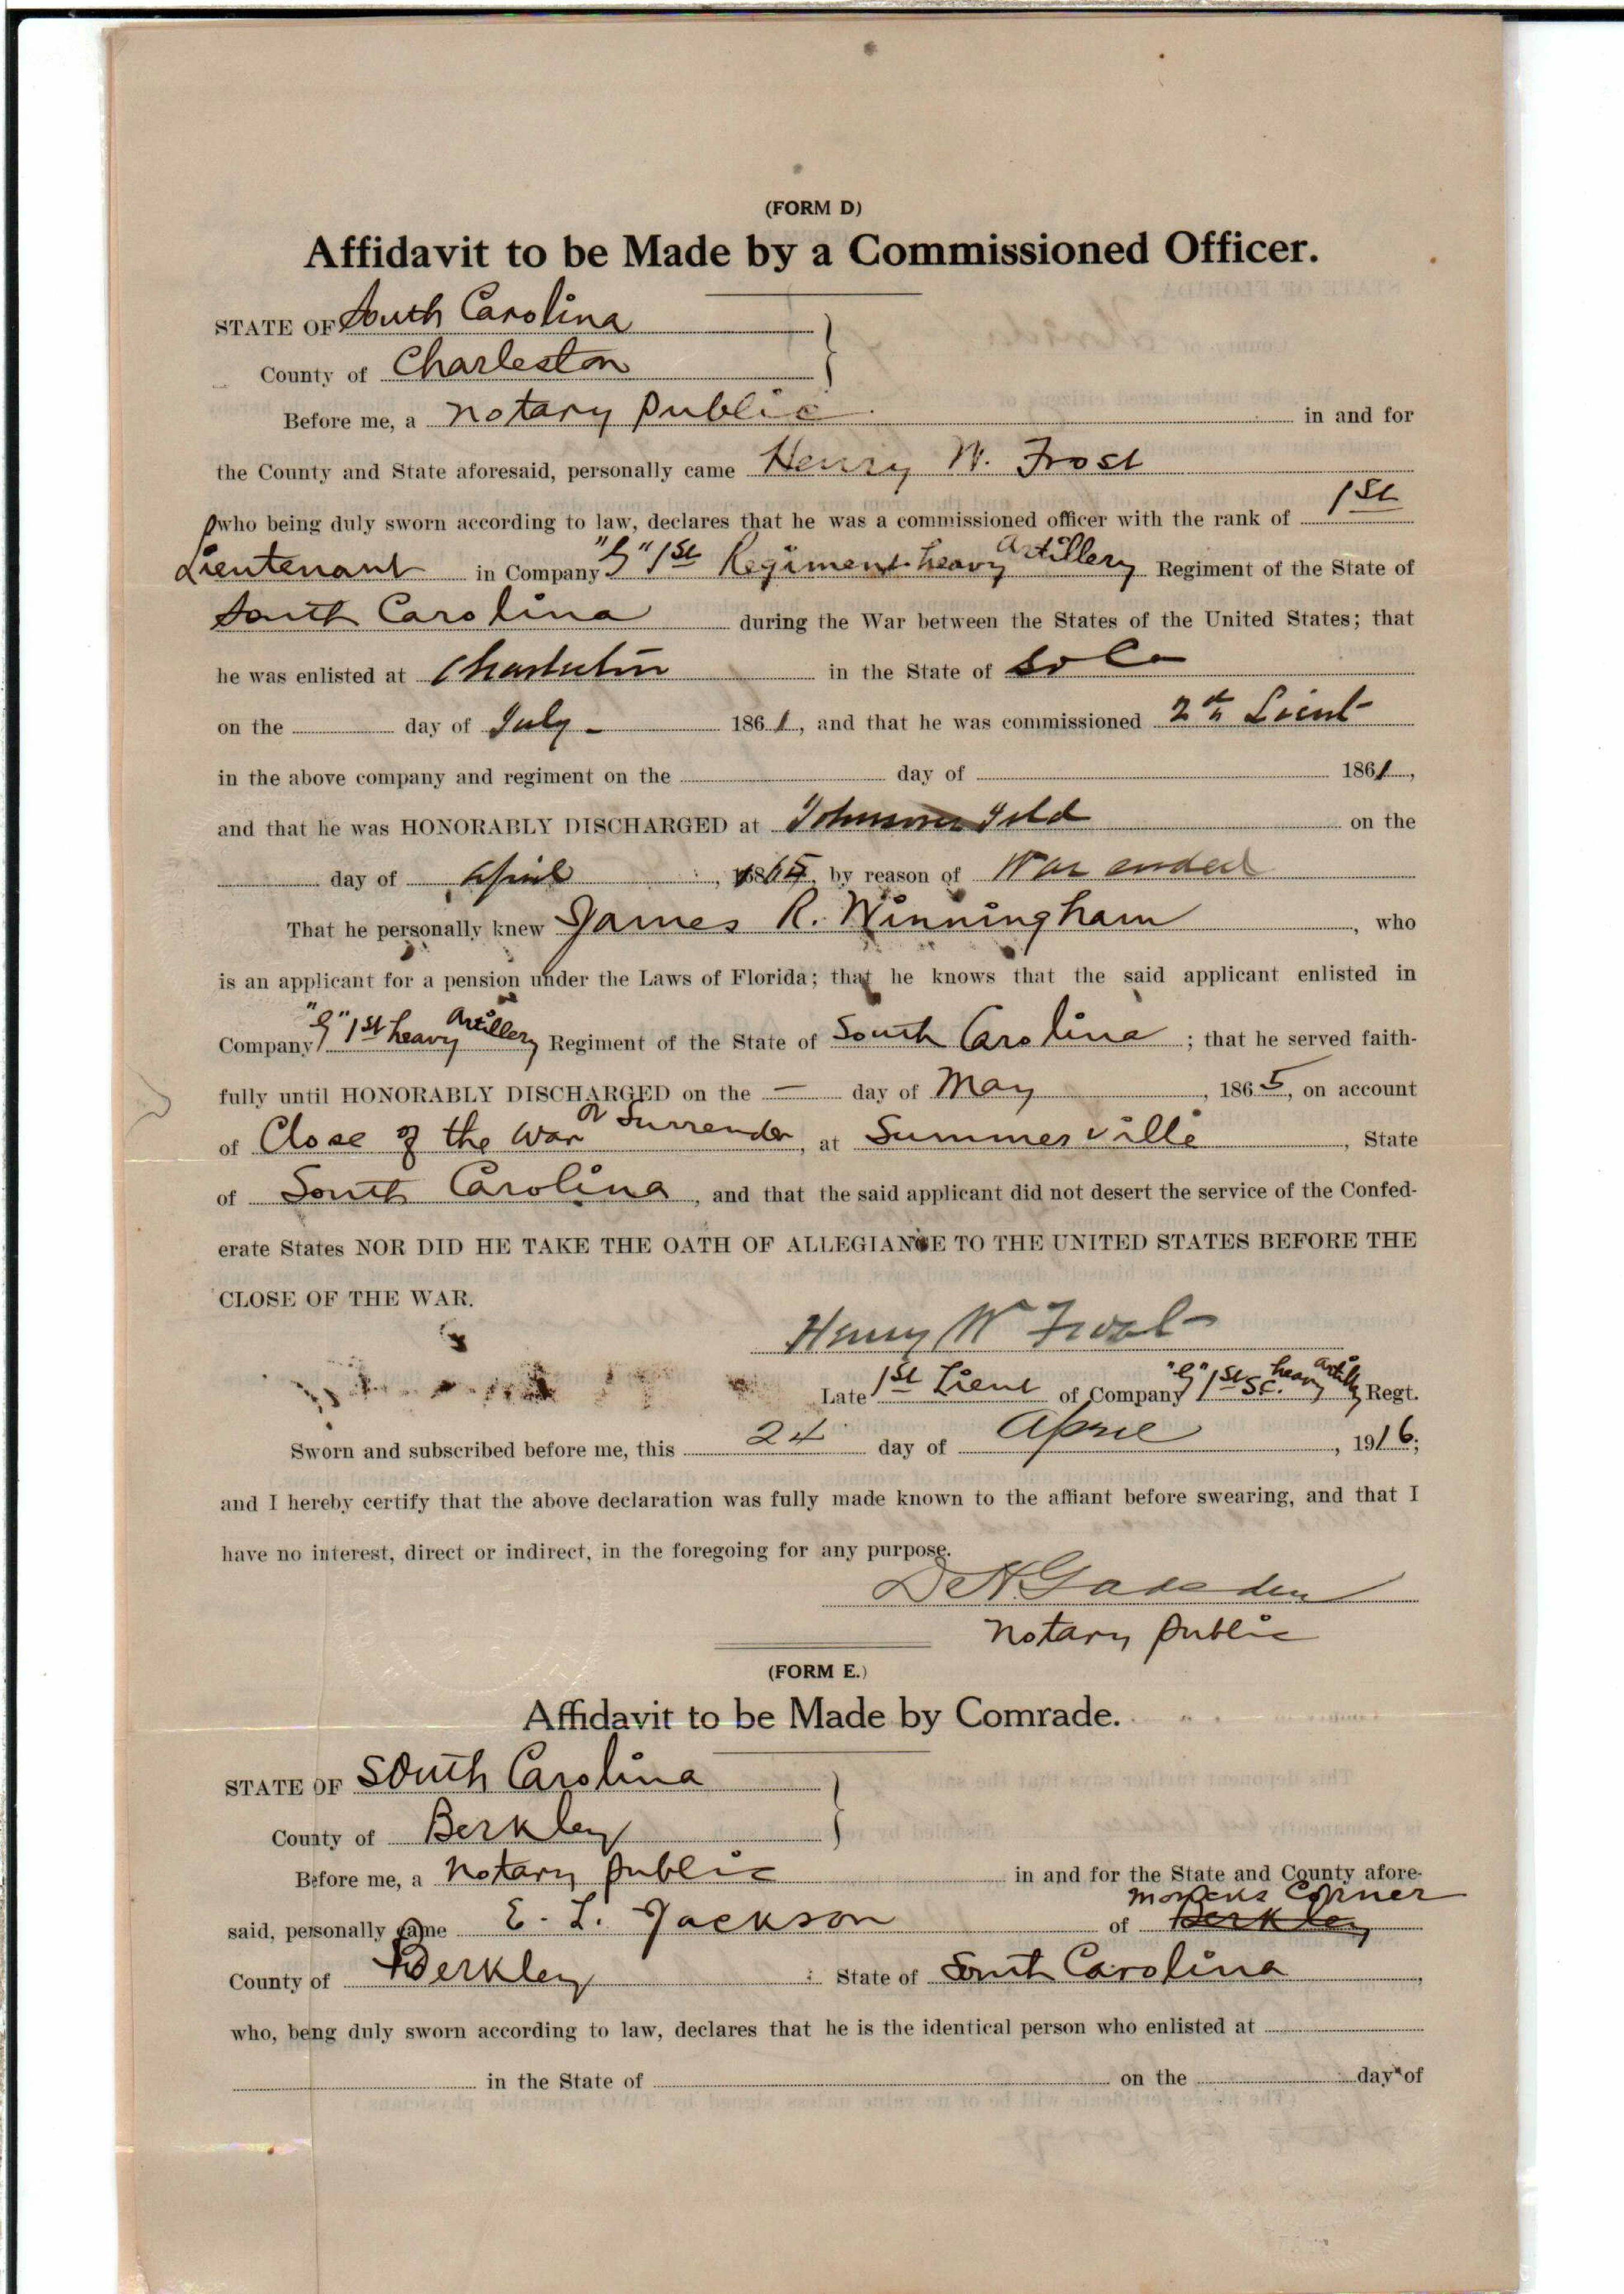 (FORM D)
Affidavit to be Made by a Commissioned Officer.
STATE OF South Carolina
County of Charleston
Before me, a notary public in and for
the County and State aforesaid, personally came Henry W. Frost
who being duly sworn according to law, declares that he was a commissioned officer with the rank of 1st
Lieutenant in Company "G" 1st Regiment heavy Artillery Regiment of the State of
South Carolina during the War between the States of the United States; that
he was enlisted at Charleston in the State of So Ca
on the day of July 1861, and that he was commissioned 2nd Lieut
in the above company and regiment on the day of 1861,
and that he was HONORABLY DISCHARGED at Johnsons Isld on the
day of April, 1865, by reason of War ended
That he personally knew James R. Winningham, who
is an applicant for a pension under the Laws of Florida; that he knows that the said applicant enlisted in
Company "G" 1st heavy Artillery Regiment of the State of South Carolina; that he served faith-
fully until HONORABLY DISCHARGED on the — day of May, 1865, on account
of Close of the War or Surrender, at Summerville, State
of South Carolina, and that the said applicant did not desert the service of the Confed-
erate States NOR DID HE TAKE THE OATH OF ALLEGIANCE TO THE UNITED STATES BEFORE THE
CLOSE OF THE WAR.
Henry W Frost
Late 1st Lieut of Company "G" 1st S.C. heavy Artilly Regt.
Sworn and subscribed before me, this 24 day of April, 1916;
and I hereby certify that the above declaration was fully made known to the affiant before swearing, and that I
have no interest, direct or indirect, in the foregoing for any purpose.
Gadsden
notary public
(FORM E.)
Affidavit to be Made by Comrade.
STATE OF South Carolina
County of Berkley
Before me, a notary public in and for the State and County afore-
Moncks Corner
said, personally came E. L. Jackson of Berkley
County of Berkley : State of South Carolina,
who, beng duly sworn according to law, declares that he is the identical person who enlisted at
in the State of on the day of